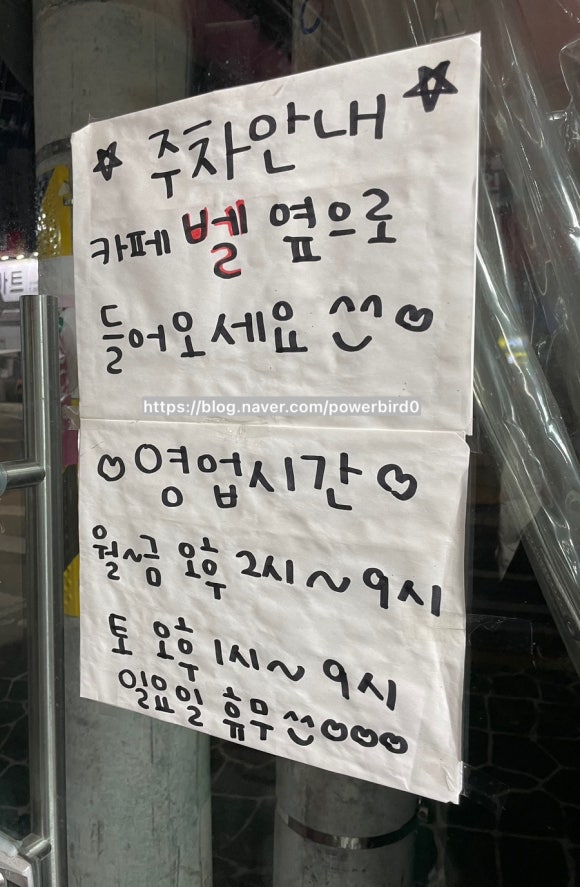 ☆ 주차안내 ☆
카페 벨 옆으로
들어오세요 ^^ ♡
https://blog.naver.com/powerbird0
♡ 영업시간 ♡
월~금 오후 2시~9시
토 오후 1시~9시
일요일 휴무 ^^ ♡♡♡
마트